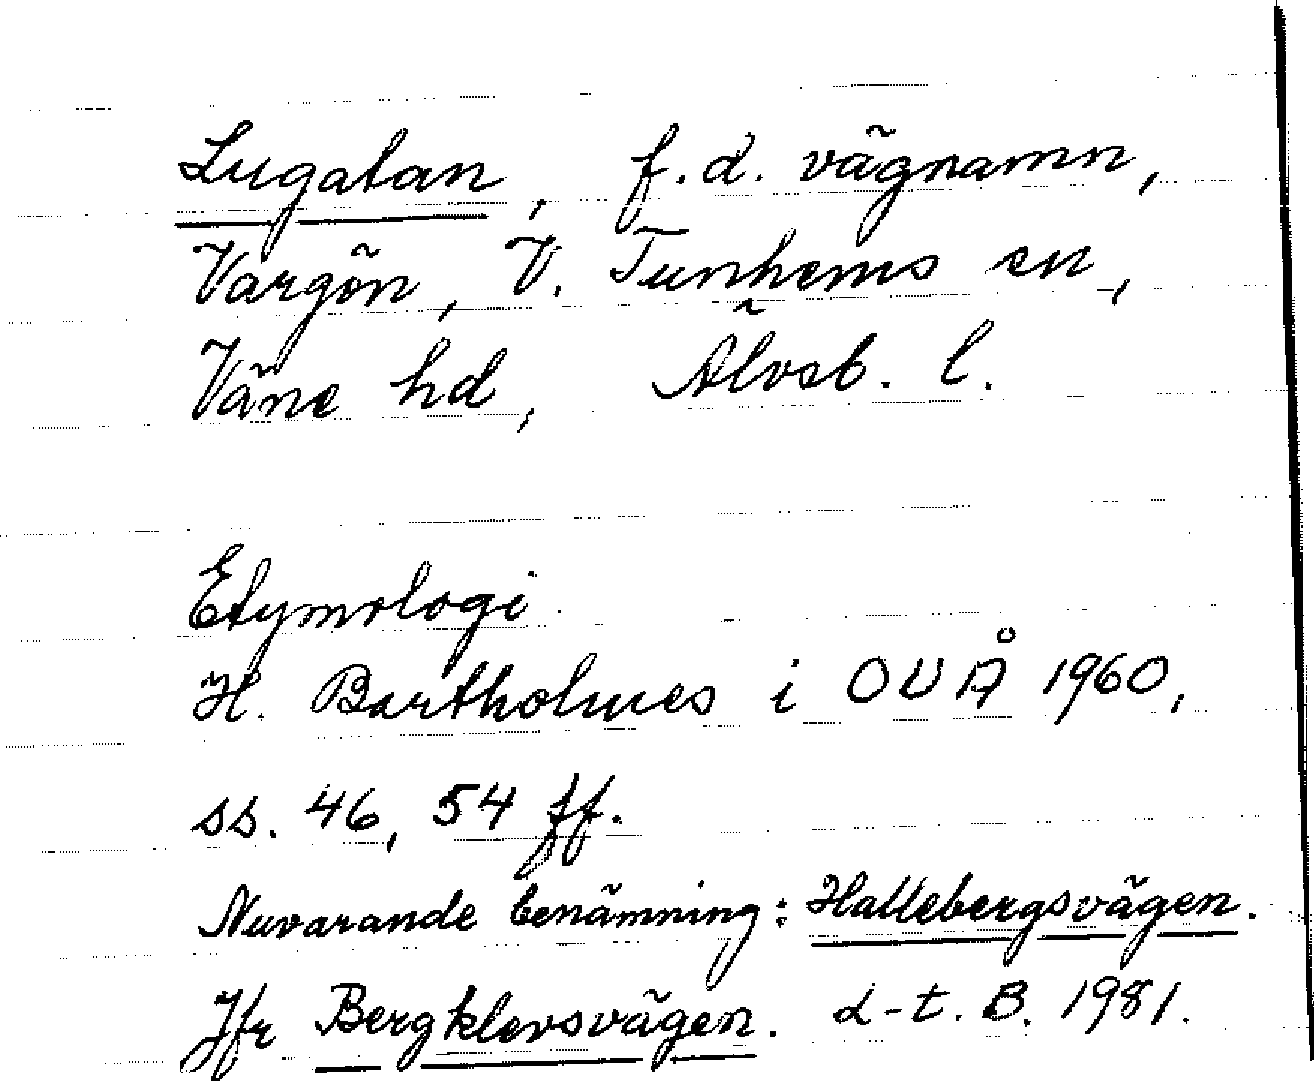 Lugatan, f.d. vägnamn,
Vargön, V. Tunhems sn,
Väne hd, Älvsb. l.
Etymologi
H. Bartholmes i OUÅ 1960,
ss. 46, 54 ff.
Nuvarande benämning: Hallebergsvägen.
Jfr Bergklevsvägen. L-t. B. 1981.